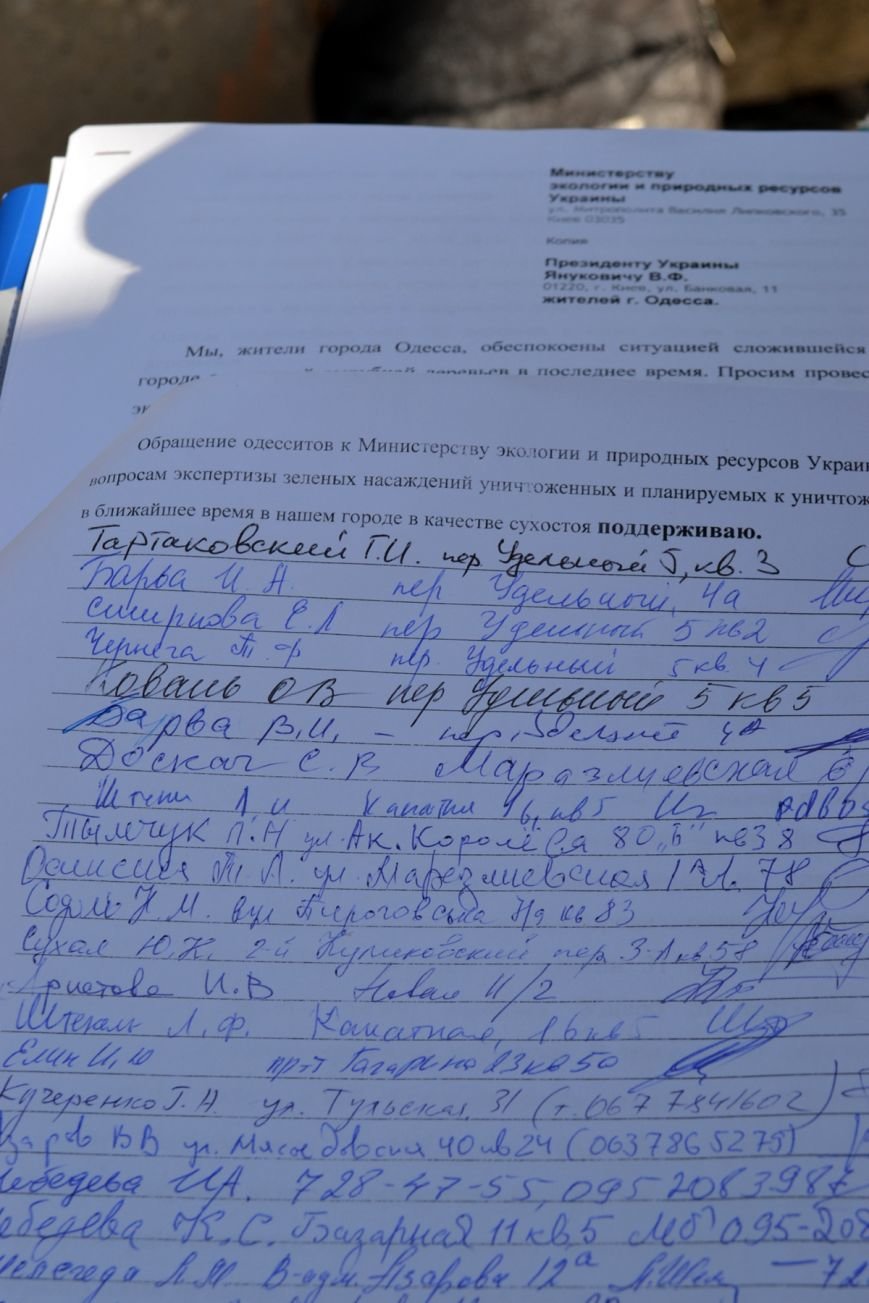 Министерству
экологии и природных ресурсов
Украины
ул. Митрополита Василия Липковского, 35
Киев 03035
Копия
Президенту Украины
Януковичу В.Ф.
01220, г. Киев, ул. Банковая, 11
жителей г. Одесса.
Мы, жители города Одесса, обеспокоены ситуацией сложившейся
городе деревьев в последнее время. Просим
Обращение одесситов к Министерству экологии и природных ресурсов
вопросам экспертизы зеленых насаждений уничтоженных и планируемых к
в ближайшее время в нашем городе в качестве сухостоя поддерживаю.
Тартаковский Г.И. пер Удельный 5, кв. 3
Барва И. А. пер Удельный, 4а
Смирнова Е.Л пер Удельный 5 кв2
Чернега Т. Ф пер. Удельный 5 кв. 4
Коваль ОВ пер Удельный 5 кв 5
Барва В.И. - пер. 4А
Доскач С. В Маразлиевская
Л И 16, кв 5
Тымчук Л.Н ул. Ак. Королёва 80 „Б" кв38
Т. Л. ул. Маразлиевская 78
Н. М. вул Пироговська кв 83
Сухая Ю.Н. 2-й Куликовский пер 3-А кв 58
И.В Новая 11/2
Штекель Л. Ф. Канатная, 16 кв 5
Елин И, Ю пр-т Гагарина 23 кв 50
Кучеренко Г. А ул. Тульская, 31 (т. 067 7841602)
В В ул. Мясоедовская 40 кв 24 (0637865275)
И.А. 728-47-55, 095
К. С. Базарная 11 кв. 5
Л.М В-адм. Азарова 12а